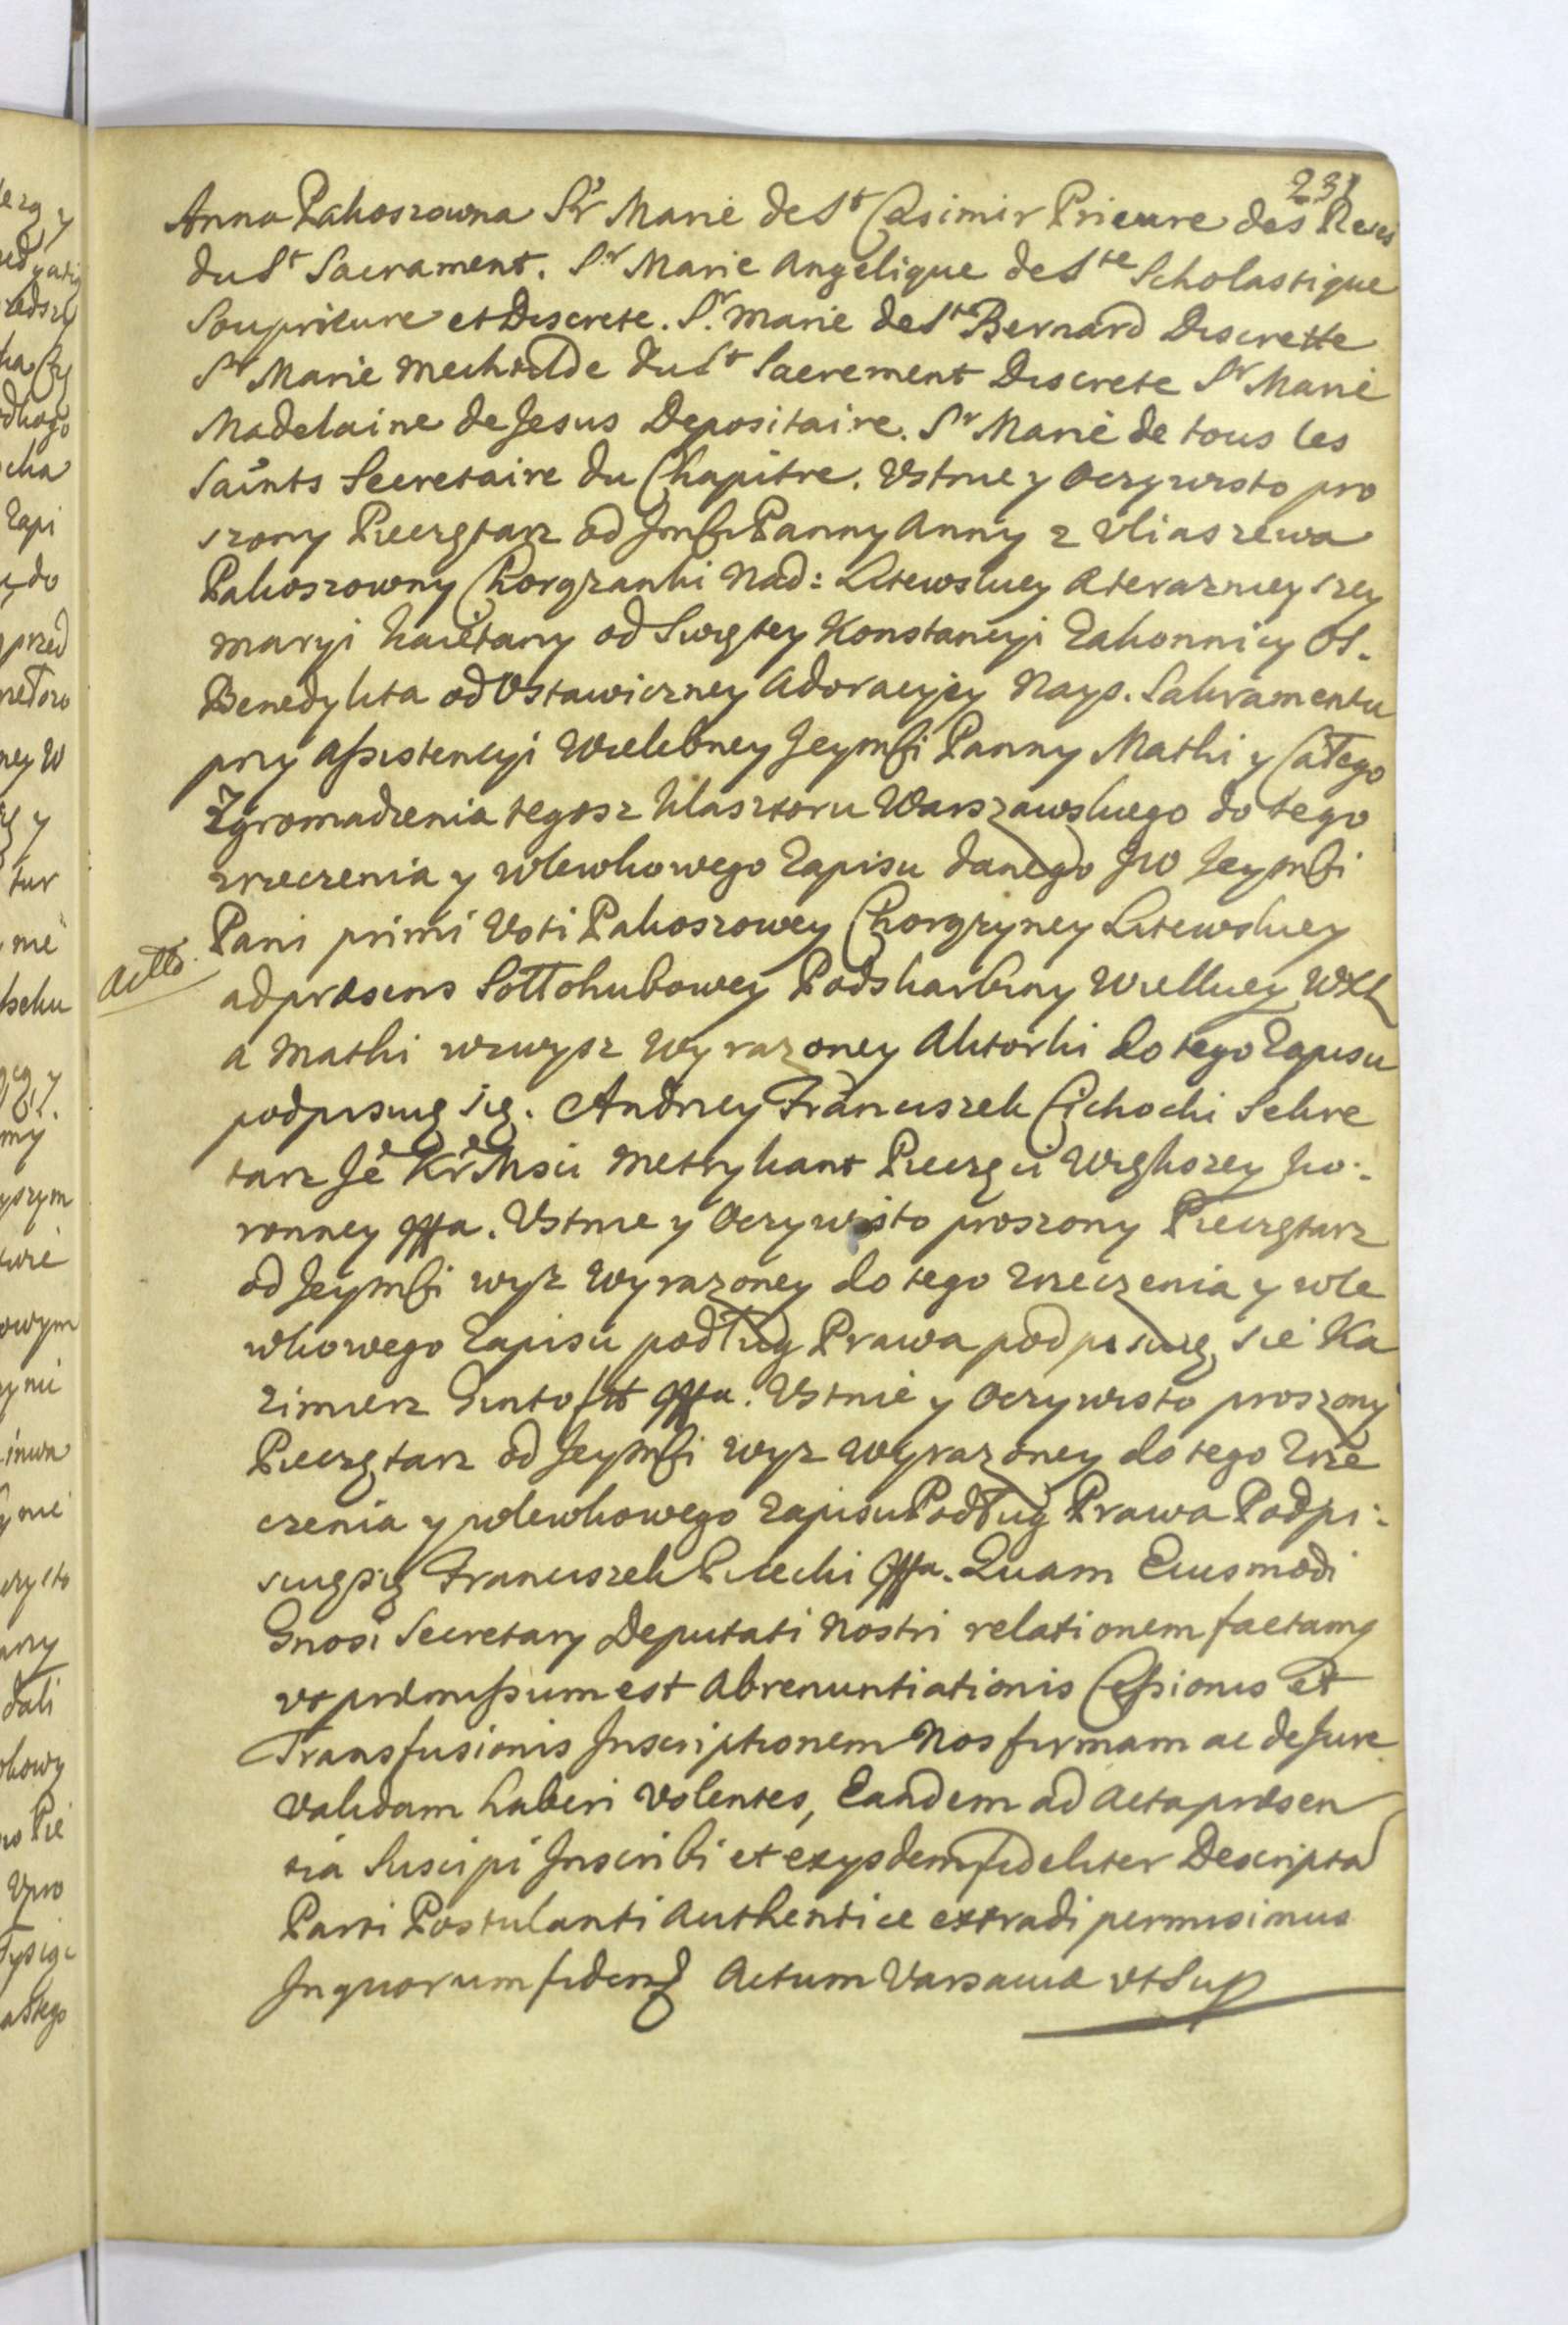 231
Anna Pakoszowna Sr Marie de St Casimir Prieure des
du St Sacrament. Sr Marie Angelique de Ste Scholastique
Souprieure et Discrete. Sr. Marie de St Bernard Discrette
Sr Marie Mechtilde du St Sacrement Discrete Sr Marie
Madelaine de Jesus Depositaire. Sr Marie de tous les
Saints Secretaire du Chapitre. Ustnie y Oczywisto pro
szony Pieczętarz od Jmści Panny Anny z Uliaszewa
Pakoszowny Chorązanki Nad: Litewskiey A teraznieyszey
Maryi Kaietany od Swiętey Konstancyi Zakonnicy OS.
Benedykta od Ustawiczney Adoracyjey Nays. Sakramentu
przy Assistencyi Wielebney Jeymści Panny Matki y Całego
Zgromadzenia tegosz Klasztoru Warszawskiego do tego
zrzeczenia y wlewkowego Zapisu danego JW Jeymści
Pani primi Voti Pakoszowey Chorązyney Litewskiey
ad præsens Sołłohubowey Podskarbiny Wielkiey WXL
Actto
a Matki wzwysz wyrazoney Aktorki do tego Zapisu
podpisuię się. Andrzey Franciszek Cichocki Sekre
tarz Je Kr Msci Metrykant Pieczęci Większey Ko:
ronney mpp. Ustnie y Oczywisto proszony Pieczętarz
od Jeymści wysz wyrazoney do tego zrzeczenia y wle
wkowego Zapisu podług Prawa podpisuię sie Ka
zimierz Gintofft mpp. Ustnie y Oczywisto proszony
Pieczętarz od Jeymści wyz wyrazoney do tego Zrze
czenia y wlewkowego Zapisu Podług Prawa Podpi:
suię się Franciszek mpp. Quam Eiusmodi
Gnosi Secretary Deputati Nostri relationem factamq
ut præmissum est Abrenuntiationis Cessionis Et
Transfusionis Inscriptionem Nos firmam ac de Jure
validam haberi volentes, Eandem ad Acta præsen
tia Suscipi Inscribi et exysdem fideliter Descripta
Parti Postulanti Authentice extradi permisimus
In quorum fidem Actum Varsaviæ ut Sup